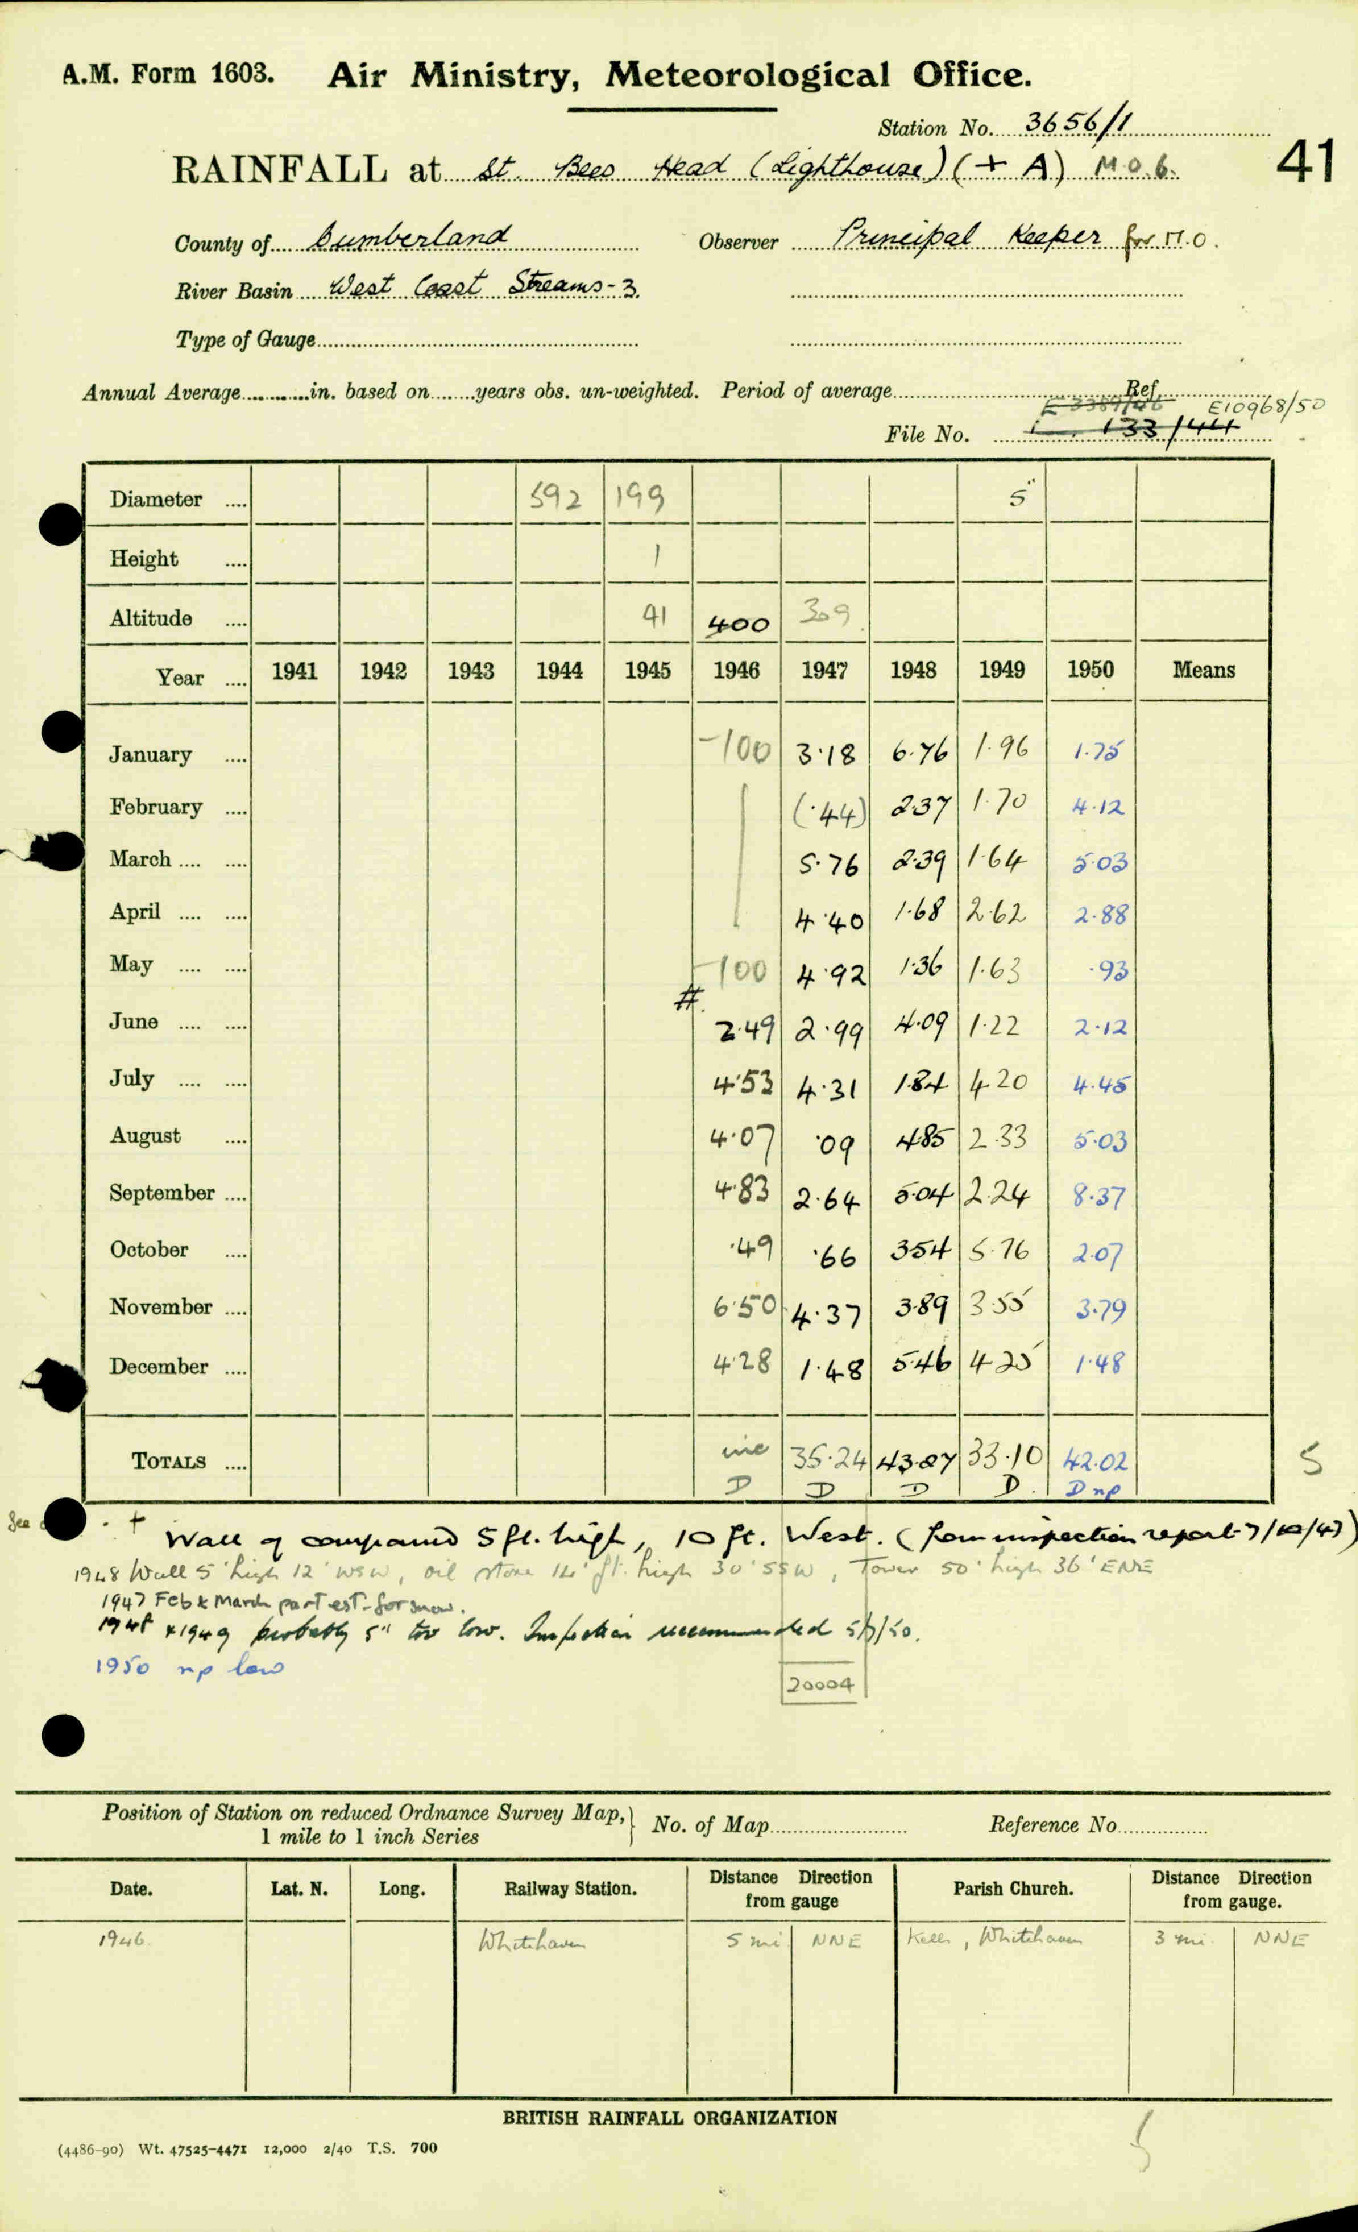 A.M. Form 1603. Air Ministry, Meteorological Office.
Station No. 3656/1
RAINFALL at St. Bees Head (Lighthouse) (+ A) M.O.6. 41
County of Cumberland Observer Principal Keeper for M.O.
River Basin West Coast Streams-3.
Type of Gauge
Annual Average in. based on years obs. un-weighted. Period of average Ref.
E 3389/46 E10968/50
File No. 133/44
Diameter 592 199 5"
Height 1
Altitude 41 400 309
Year 1941 1942 1943 1944 1945 1946 1947 1948 1949 1950 Means
January -100 3.18 6.76 1.96 1.75
February (.44) 2.37 1.70 4.12
March 5.76 2.39 1.64 5.03
April 4.40 1.68 2.62 2.88
May -100 4.92 1.36 1.63 .93
#
June 2.49 2.99 4.09 1.22 2.12
July 4.53 4.31 1.84 4.20 4.45
August 4.07 .09 4.85 2.33 5.03
September 4.83 2.64 5.04 2.24 8.37
October .49 .66 3.54 5.76 2.07
November 6.50 4.37 3.89 3.55 3.79
December 4.28 1.48 5.46 4.25 1.48
TOTALS inc 35.24 43.27 33.10 42.02 5
D D D D. D np
See + Wall of compound 5 ft. high, 10 ft. West. (from inspection report 7/10/47)
1948 Wall 5' high 12' WSW, oil store 14 ft. high 30' SSW, Tower 50' high 36' ENE
1947 Feb & March part est. for snow.
1948 & 1949 probably 5" too low. Inspection recommended 5/9/50.
1950 np low
20004
Position of Station on reduced Ordnance Survey Map, 1 mile to 1 inch Series } No. of Map Reference No.
Date. Lat. N. Long. Railway Station. Distance Direction from gauge Parish Church. Distance Direction from gauge.
1946. Whitehaven 5 mi NNE Kells, Whitehaven 3 mi. NNE
BRITISH RAINFALL ORGANIZATION
(4486-90) Wt. 47525-4471 12,000 2/40 T.S. 700